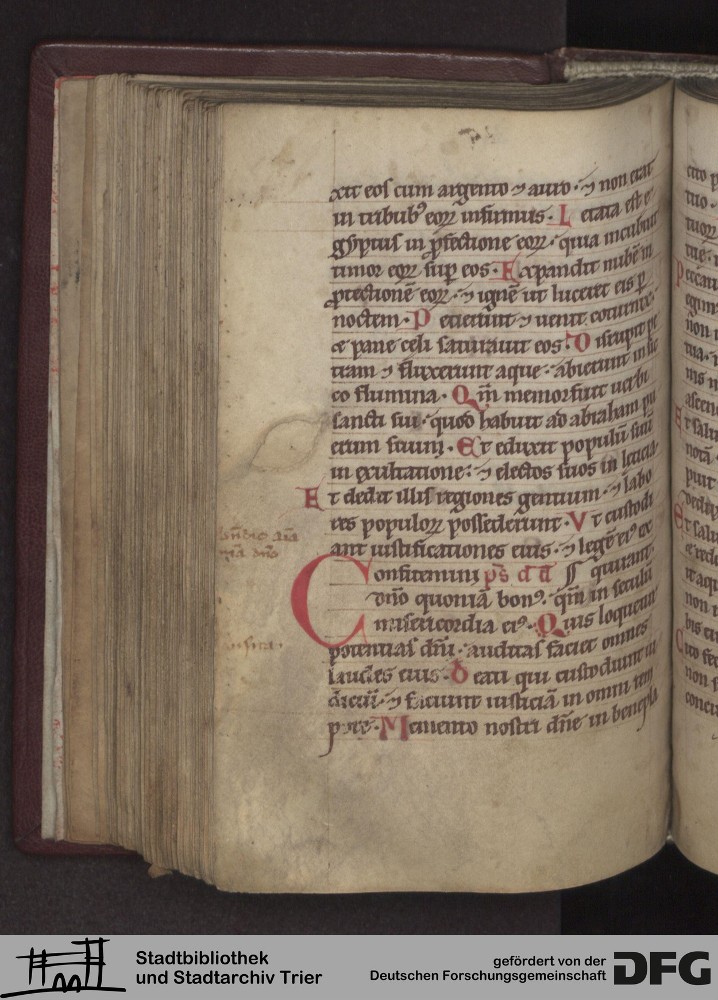 xit eos cum argento ⁊ auro · ⁊ non erat
in tribubꝰ eoꝝ infirmus · Letata est e
gyptus in ꝓfectione eoꝝ · quia incubuit
timor eoꝝ suꝑ eos · Expandit nubē in
ꝓtectionē eoꝝ · ⁊ ignē ut luceret eis ꝑ
noctem · Petierunt ⁊ uenit coturnix ·
⁊ pane celi saturauit eos · Disrupit pe
tram ⁊ fluxerunt aque · abierunt in sic
co flumina · Qm̄ memor fuit uerbi
sancti sui · quod habuit ad abraham pu
erum suum · Et eduxit populū suū
in exultatione : ⁊ electos suos in leticia
Et dedit illis regiones gentium · ⁊ labo
res populoꝝ possederunt · Vt custodi
ant iustificationes eius · ⁊ legē eiꝰ ex
Confitemini quirant ·
dn̄o quoniā bonꝰ · qm̄ in seculū
misericordia eiꝰ · Quis loquetur
potentias dn̄i · auditas faciet omnes
laudes eius · Beati qui custodiunt iu
diciū · ⁊ faciunt iusticiā in omni tem
pore · Memento nostri dn̄e in benepla
Stadtbibliothek
und Stadtarchiv Trier
gefördert von der
Deutschen Forschungsgemeinschaft
DFG